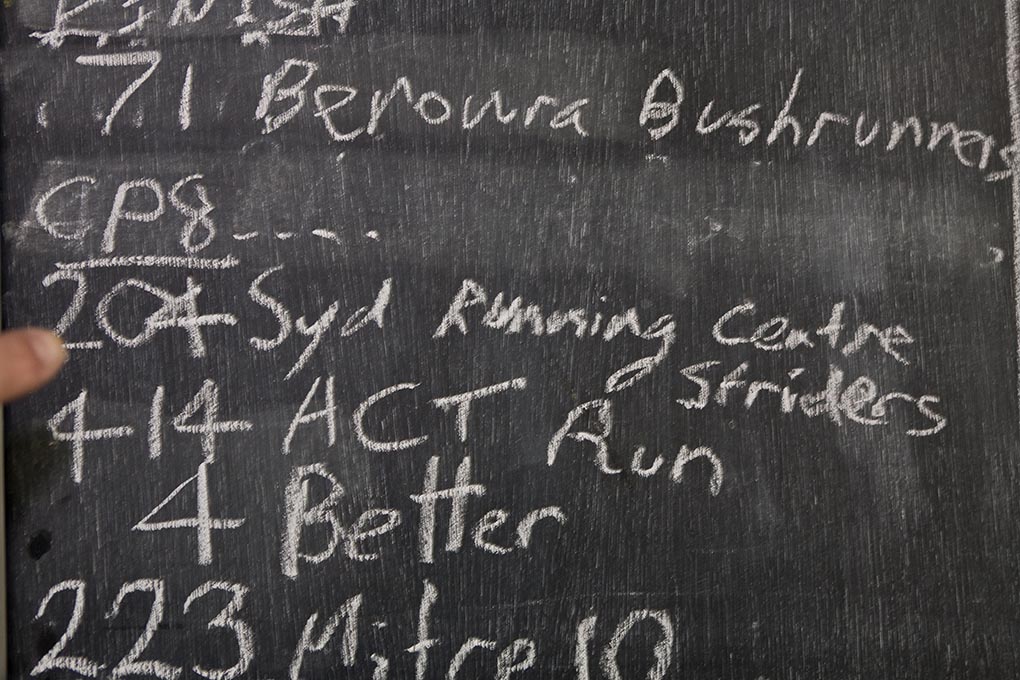 FINISH
71 Beroura Bushrunners
CP8-----
204 Syd Running Centre
Striders
414 ACT Run
4 Better
223 Mitre 10